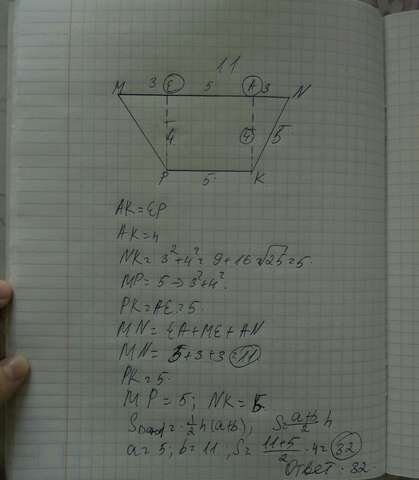 11
M 3 E 5 A 3 N
4 4 5
P 5 K
AK = EP
AK = h
NK = 3² + 4² = 9 + 16 √25 = 5.
MP = 5 → 3² + 4².
PK = AE = 5.
MN = EA + ME + AN
MN = 5 + 3 + 3 = 11
PK = 5.
MP = 5; NK = 5.
= 1/2 h (a+b), S = (a+b)/2 h
a = 5; b = 11; S = (11+5)/2 · 4 = 32
Ответ: 32